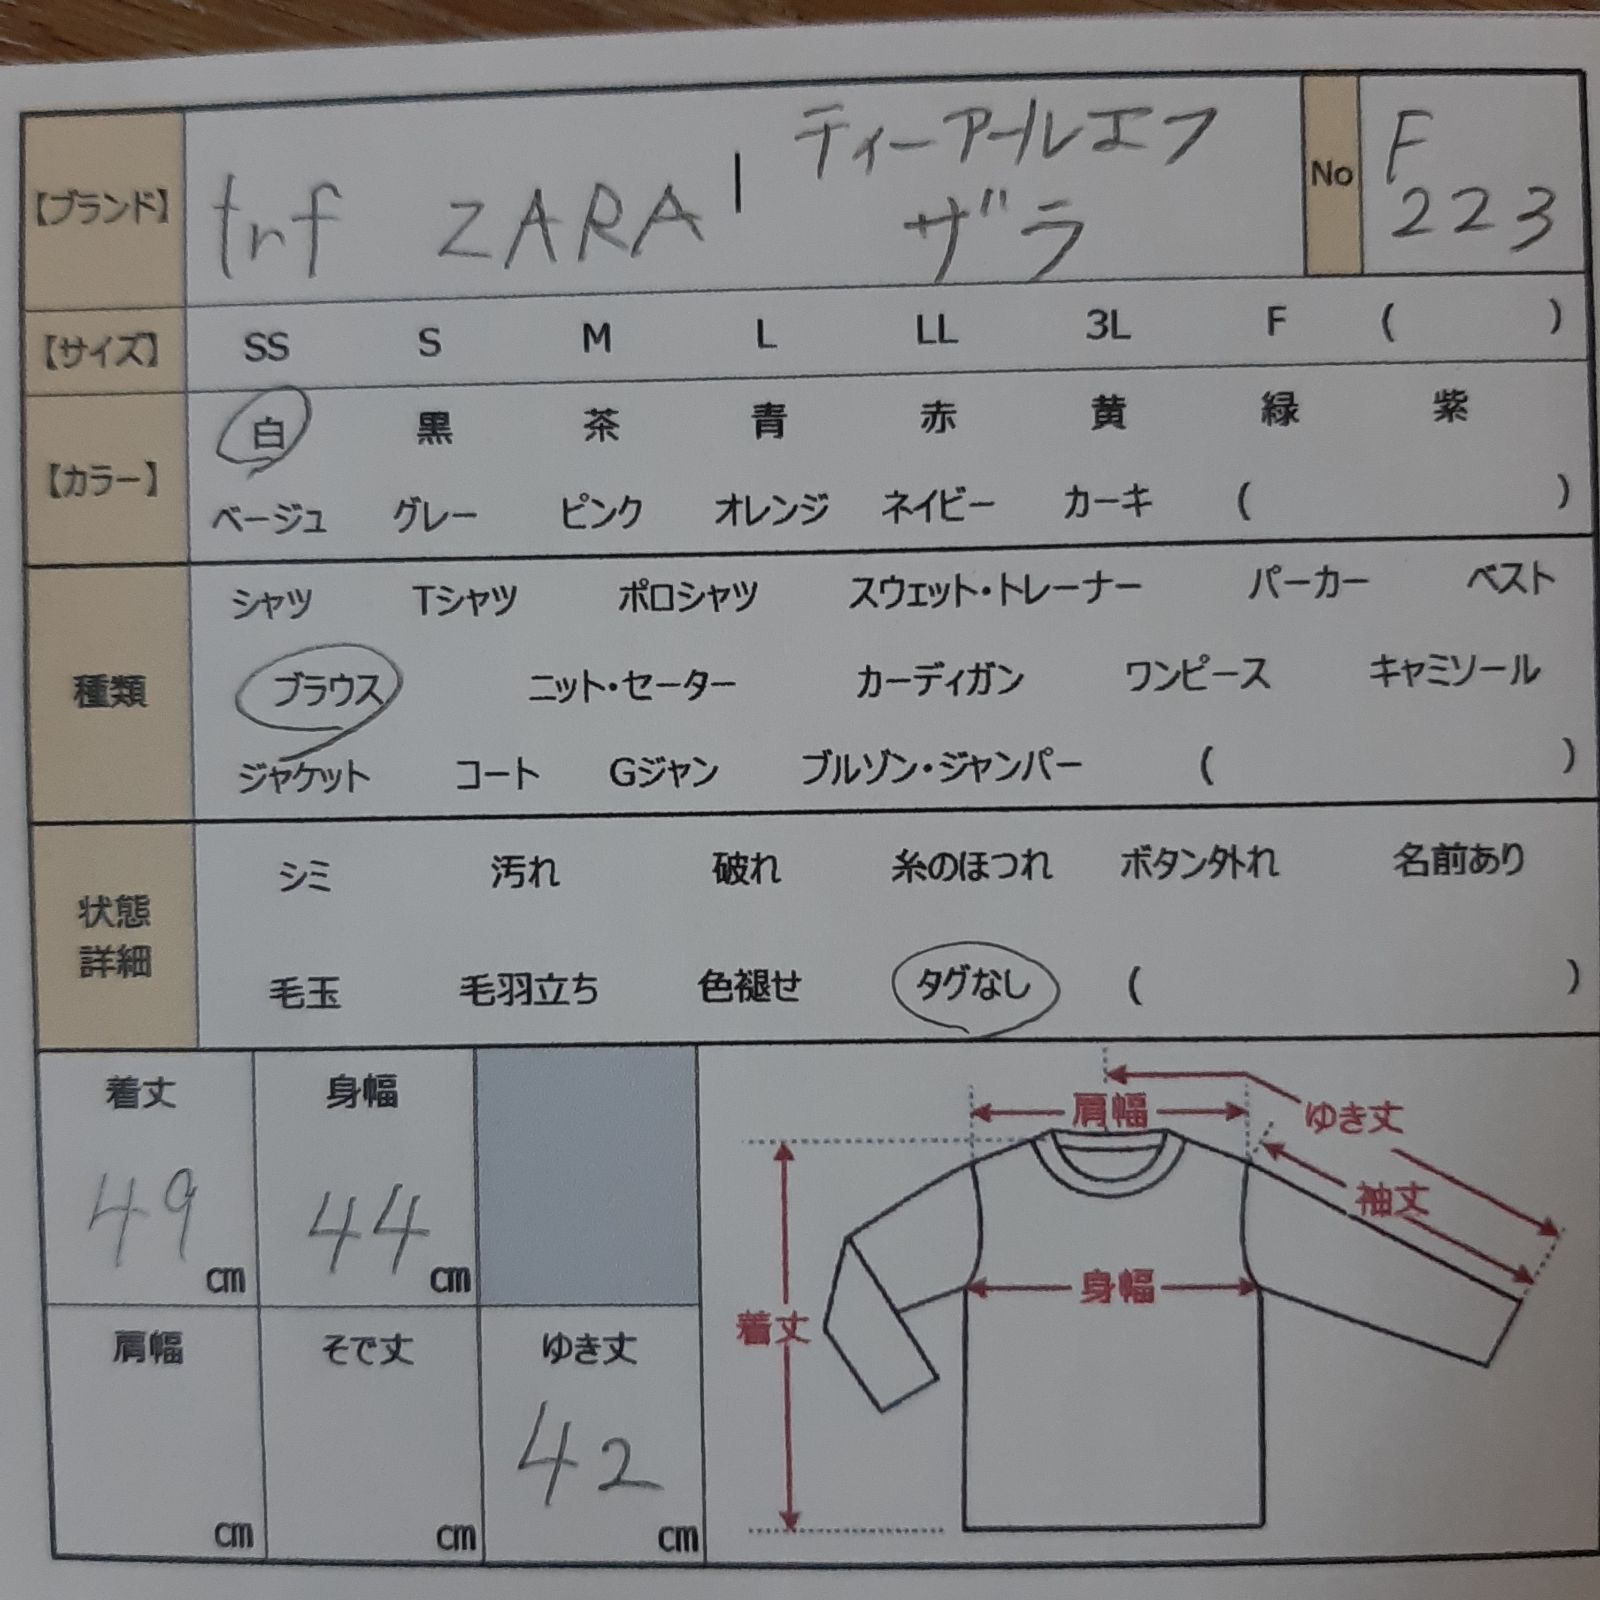 【ブランド】 trf ZARA ティーアールエフ ザラ No F 223
【サイズ】 SS S M L LL 3L F ( )
【カラー】 白 黒 茶 青 赤 黄 緑 紫
ベージュ グレー ピンク オレンジ ネイビー カーキ ( )
種類 シャツ Tシャツ ポロシャツ スウェット・トレーナー パーカー ベスト
ブラウス ニット・セーター カーディガン ワンピース キャミソール
ジャケット コート Gジャン ブルゾン・ジャンパー ( )
状態詳細 シミ 汚れ 破れ 糸のほつれ ボタン外れ 名前あり
毛玉 毛羽立ち 色褪せ タグなし ( )
着丈 49 cm
身幅 44 cm
肩幅 cm
そで丈 cm
ゆき丈 42 cm
肩幅
ゆき丈
袖丈
身幅
着丈